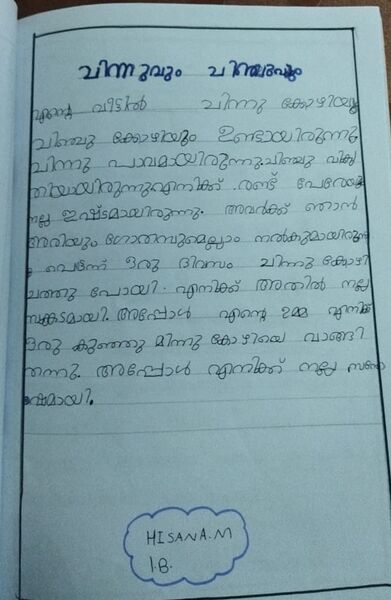 ചിന്നുവും ചിഞ്ചുവും
എന്റെ വീട്ടിൽ ചിന്നു കോഴിയും
ചിഞ്ചു കോഴിയും ഉണ്ടായിരുന്നു.
ചിന്നു പാവമായിരുന്നു.ചിഞ്ചു വികൃ
തിയായിരുന്നു എനിക്ക് രണ്ട് പേരേയും
നല്ല ഇഷ്ടമായിരുന്നു. അവർക്ക് ഞാൻ
അരിയും ഗോതമ്പുമെല്ലാം നൽകുമായിരുന്നു
പെട്ടന്ന് ഒരു ദിവസം ചിന്നു കോഴി
ചത്തു പോയി. എനിക്ക് അതിൽ നല്ല
സങ്കടമായി. അപ്പോൾ എന്റെ ഉമ്മ എനിക്ക്
ഒരു കുഞ്ഞു മിന്നു കോഴിയെ വാങ്ങി
തന്നു. അപ്പോൾ എനിക്ക് നല്ല സന്തോ
ഷമായി.
HISANA.M
1.B.